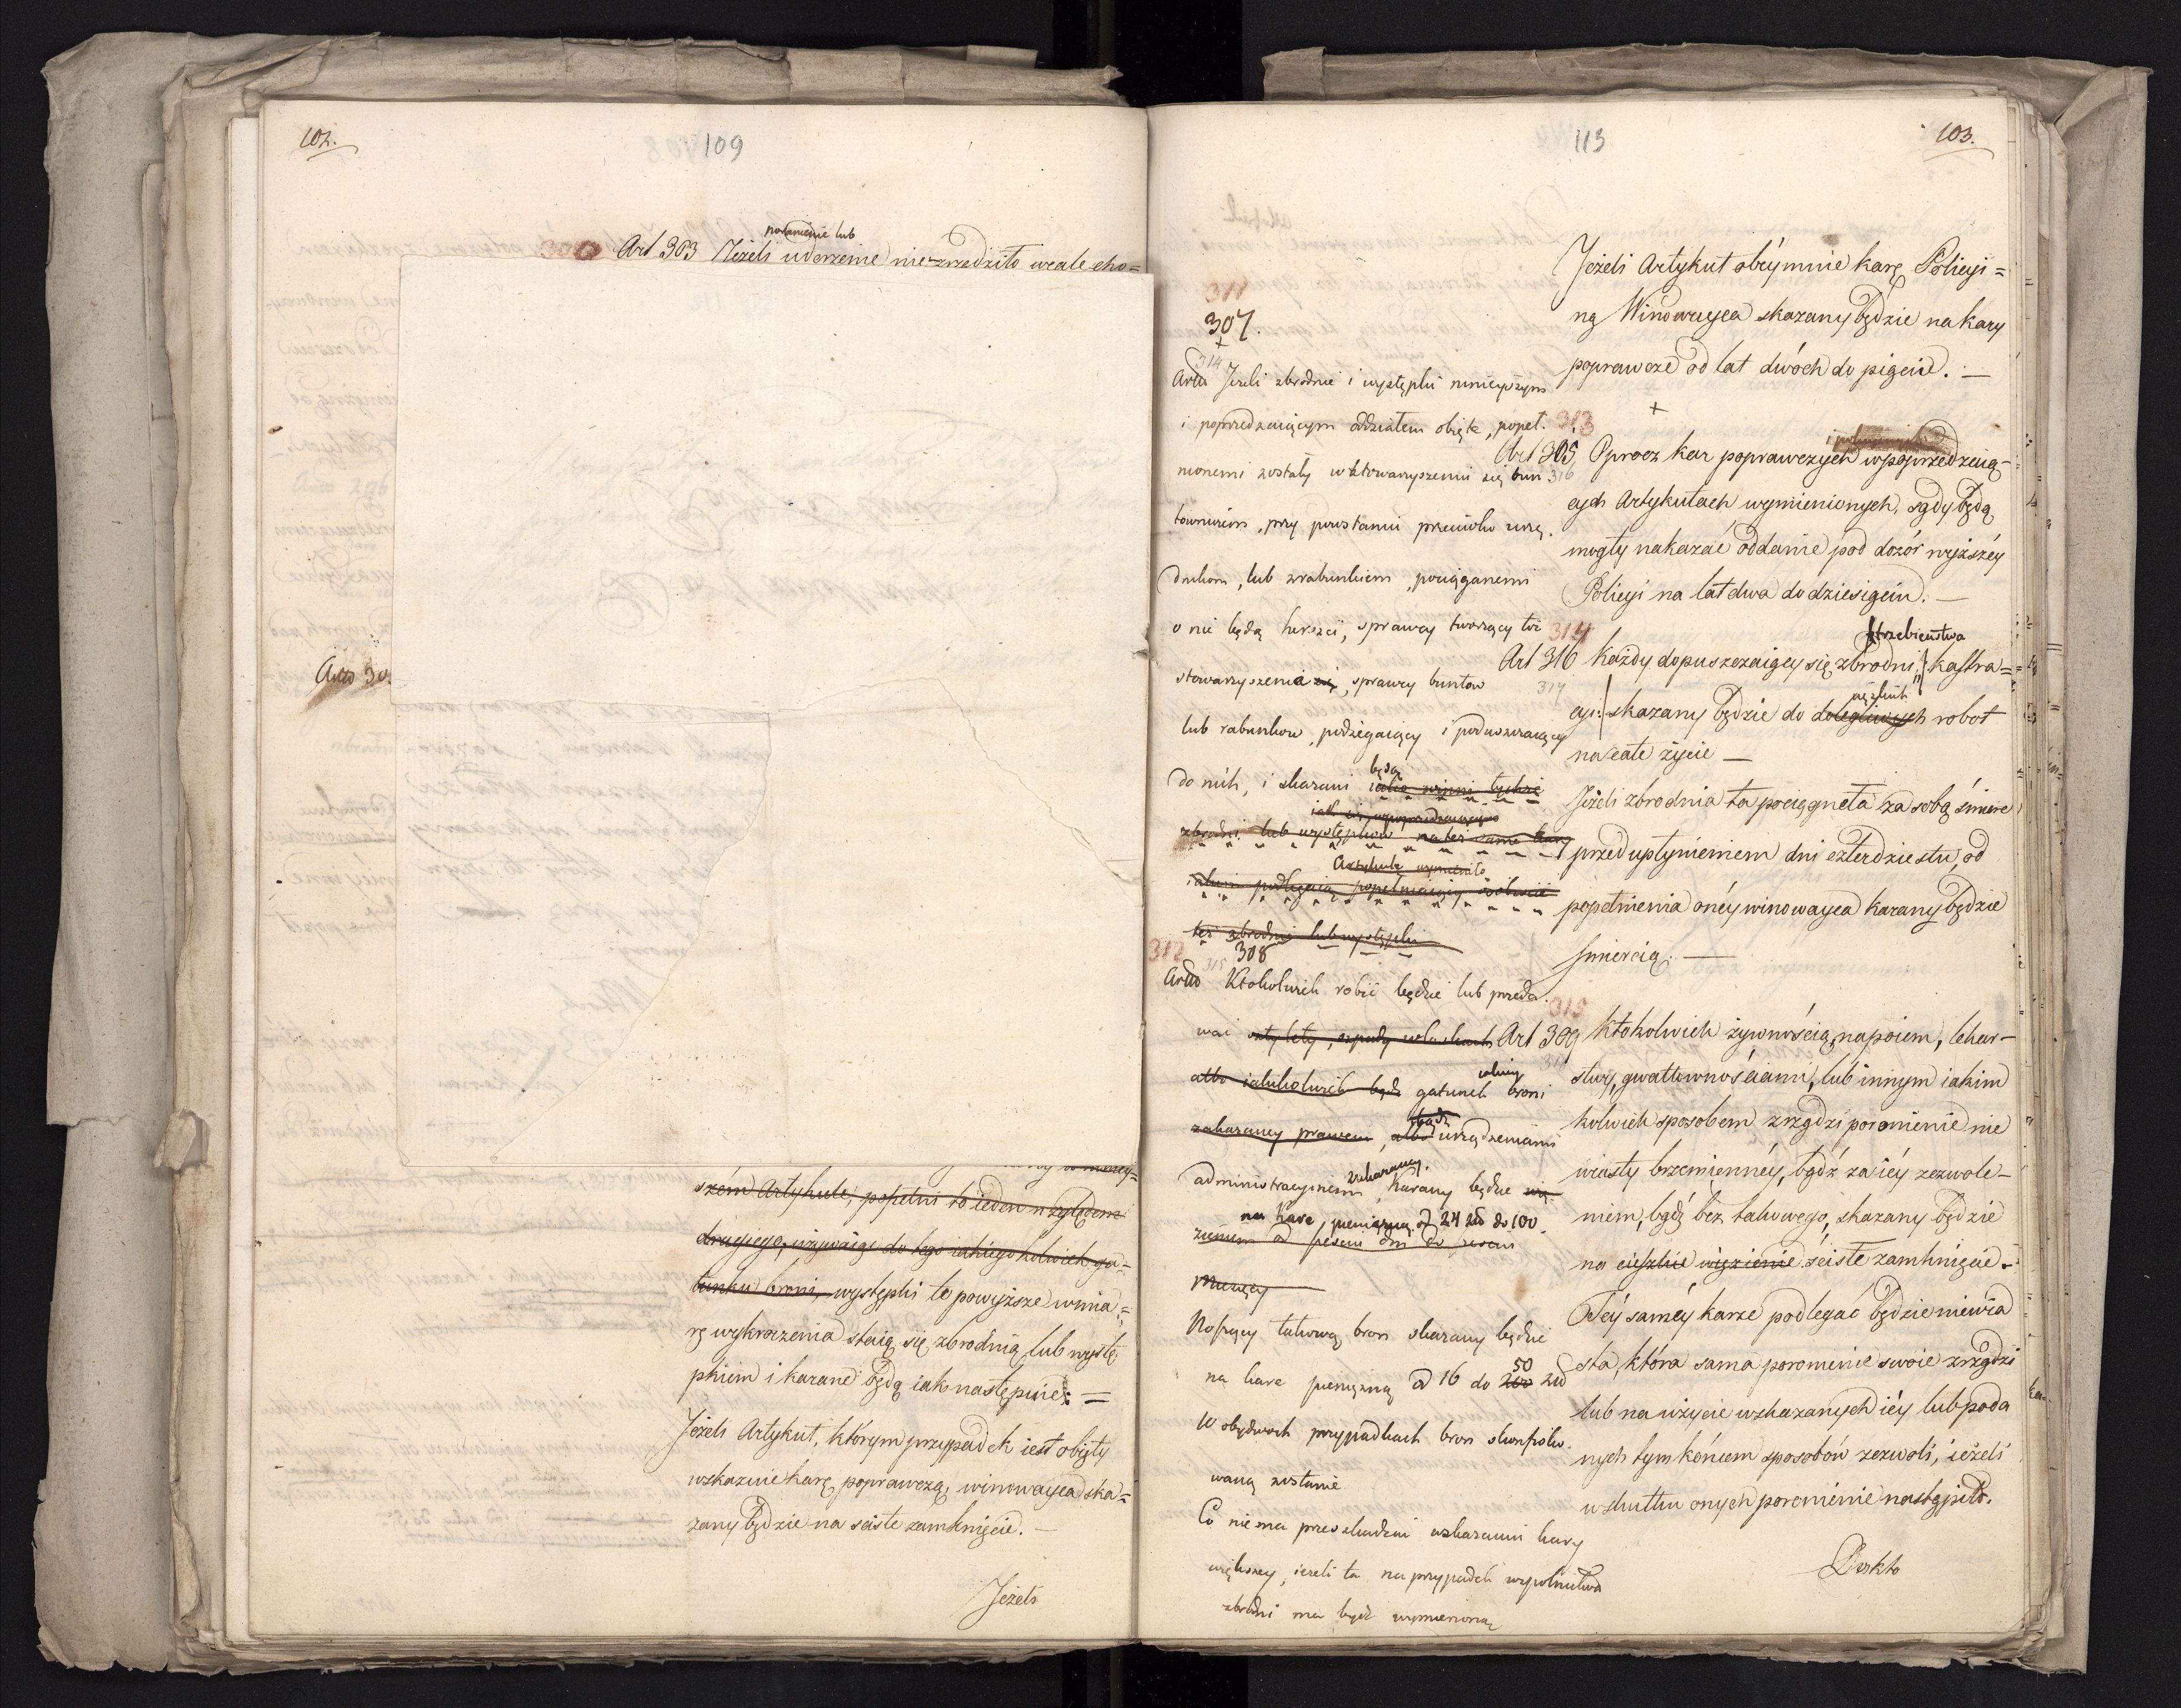 102.
109
300 Art 303 Jeżeli uderzenie nie zrządziło wcale cho=
lub
Art 30
szém Artykule, popełni to ieden względem
drugiego, używaiąc do tego iakiegokolwiek ga=
tunku broni, występki te powyższe w mia=
rę wykroczenia staią się zbrodnią lub wystę
pkiem i karane będą iak następuie: =
Jeżeli Artykuł, którym przypadek iest obięty
wskazuie karę poprawczą, winowayca ska=
zany będzie na ściste zamknięcie. —
Jeżeli
113
103.
311
307.
+
314
Jeżeli zbrodnie i występki ninieyszym
i poprzedzaiącym oddziałem obięte, popeł.
nionemi zostały w stowarzyszeniu się bun
towniczem, przy powstaniu przeciwko urzę.
dnikom, lub z rabunkiem, pociąganemi
o nie będą herszci, sprawcy tworzący też
stowarzyszenia się, sprawcy buntów
lub rabunków, podżegaiący i poduszczaiący
do nich, i skarani będą iako winni tychże
zbrodni lub występków na też same kary
iakim podlegaią popełniaiący osobiście
też zbrodnie lub występki
312
308
315
Ktokolwiek robić będzie lub przeda.
wać sztylety, szpady w laskach
albo iakikolwiek bądź gatunek broni
zakazaney prawem, albo urządzeniami
bądź
administracyinemi zakazaney, karany będzie wię
na karę pieniężną od 24 zło do 100.
zieniem od sześciu dni do sześciu
miesięcy
Noszący takową broń skazany będzie
na karę pieniężną od 16 do 200 zło
50
W obydwóch przypadkach broń skonfisko.
waną zostanie
Co nie ma przeszkadzać wskazaniu kary
większey, ieżeli ta na przypadek wspólnictwa
zbrodni ma bydź wymierzoną
Jeżeli Artykuł obeymuie karę Policyi=
ną Winowayca skazany będzie na kary
poprawcze od lat dwóch do pięciu. —
+
313
Art 305 Oprocz kar poprawczych w poprzedzaią-
316
cych Artykułach wymienionych, sądy będą
mogły nakazać oddanie pod dozór wyższéy
Policyi na lat dwa do dziesięciu. —
314
trzebieństwa
Art 316 Każdy dopuszczaiący się zbrodni kastra=
317
cyi skazany będzie do dolegliwych robot
ciężkich
na całe życie —
Jeżeli zbrodnia ta pociągnęła za sobą śmierć
przed upłynieniem dni czterdziestu, od
popełnienia onéy winowayca karany będzie
śmiercią. —
315
Art 309 Ktokolwiek żywnością, napoiem, lekar-
stwy, gwałtownościami, lub innym iakim
kolwiek sposobem zrządzi poronienie nie
wiasty brzemiennéy, bądź za iéy zezwole-
niem, bądź bez takowego, skazany będzie
na cięszkie więzienie ściste zamknięcie.
Téy saméy karze podlegać będzie niewia
sta, która sama poronienie swoie zrządzi
lub na użycie wskazanych iéy lub poda
nych tym końcem sposobów zezwoli, ieżeli
w skutku onych poronienie nastąpiło.